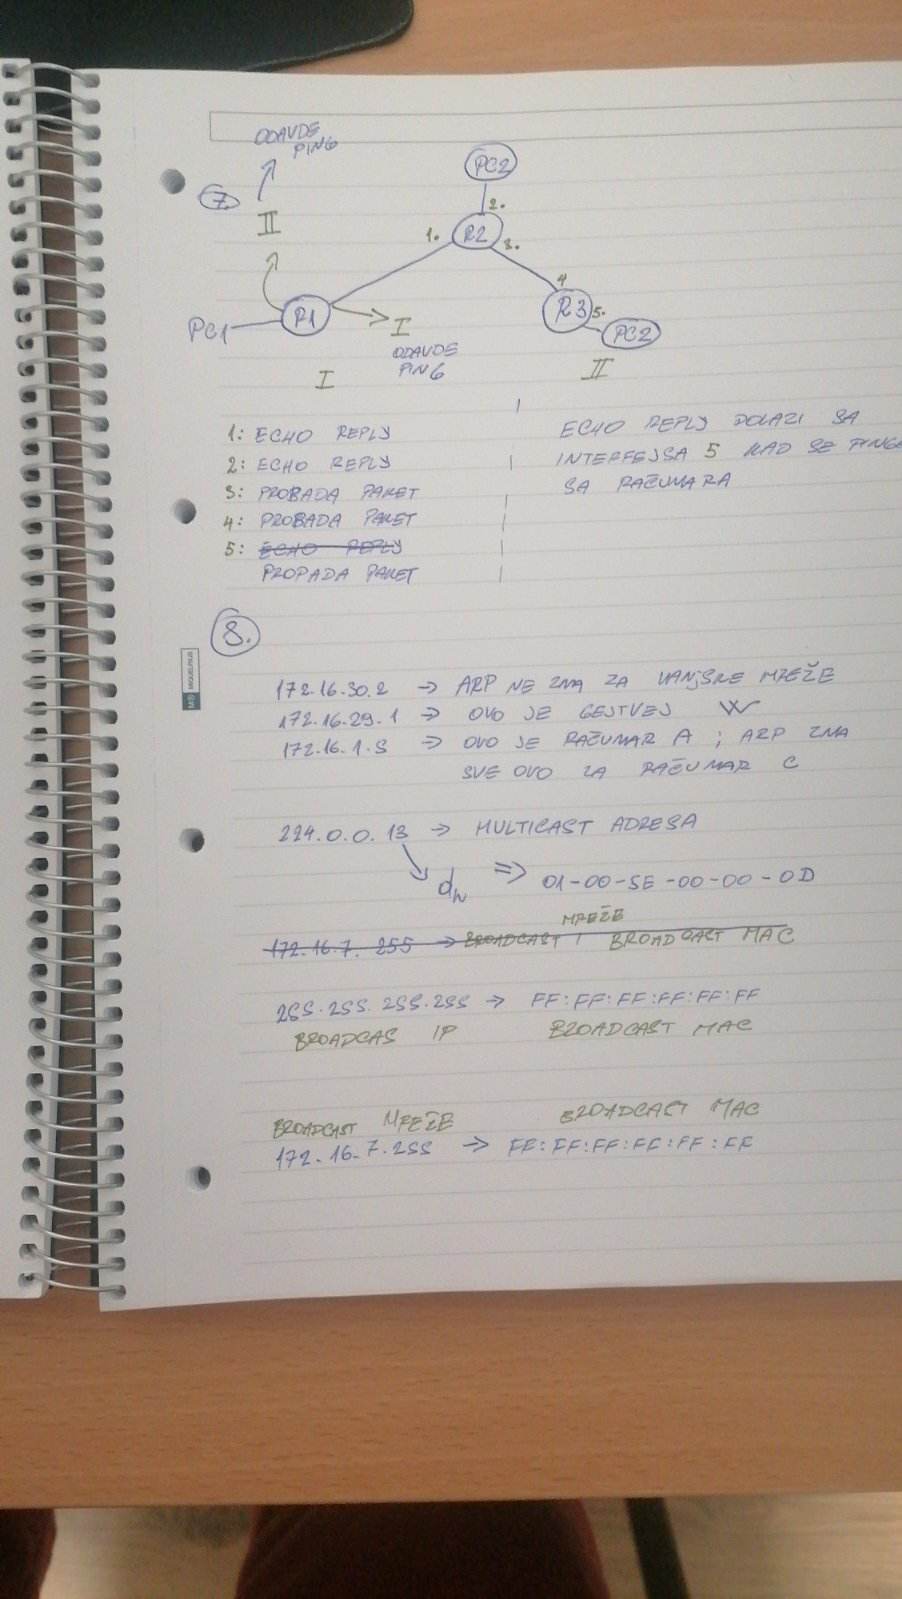 ODAVDE
PING
7.
II
PC2
2.
1.
R2
3.
4
PC1
R1
R3
5.
PC2
I
ODAVDE
PING
I
II
1: ECHO REPLY
2: ECHO REPLY
3: PROBADA PAKET
4: PROBADA PAKET
5: ECHO REPLY
PROPADA PAKET
ECHO REPLY DOLAZI SA
INTERFEJSA 5 KAD SE PINGA
SA RAČUNARA
8.
MIQUELRIUS
172.16.30.2 → ARP NE ZNA ZA VANJSKE MREŽE
172.16.29.1 → OVO JE GEJTVEJ W
172.16.1.5 → OVO JE RAČUNAR A ; ARP ZNA
SVE OVO ZA RAČUNAR C
224.0.0.13 → MULTICAST ADRESA
⇒ 01-00-5E-00-00-0D
MREŽE
172.16.7.255 → BROADCAST | BROADCAST MAC
255.255.255.255 → FF:FF:FF:FF:FF:FF
BROADCAS IP BROADCAST MAC
BROADCAST MREŽE BROADCAST MAC
172.16.7.255 → FF:FF:FF:FF:FF:FF